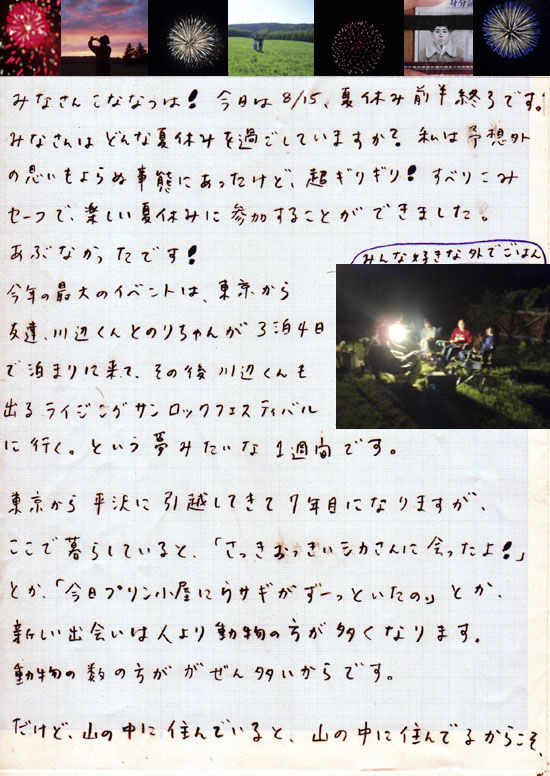 身分証
みなさんこななつは! 今日は8/15、夏休み前半終了です。
みなさんはどんな夏休みを過ごしていますか? 私は予想外
の思いもよらぬ事態にあったけど、超ギリギリ! すべりこみ
セーフで、楽しい夏休みに参加することができました。
あぶなかったです!
みんな好きな外でごはん
今年の最大のイベントは、東京から
友達、川辺くんとのりちゃんが3泊4日
で泊まりに来て、その後川辺くんも
出るライジングサンロックフェスティバル
に行く。という夢みたいな1週間です。
東京から平沢に引越してきて7年目になりますが、
ここで暮らしていると、「さっきおっきいシカさんに会ったよ!」
とか、「今日プリン小屋にウサギがずーっといたの」とか、
新しい出会いは人より動物の方が多くなります。
動物の数の方がぜん多いからです。
だけど、山の中に住んでいると、山の中に住んでるからこそ、